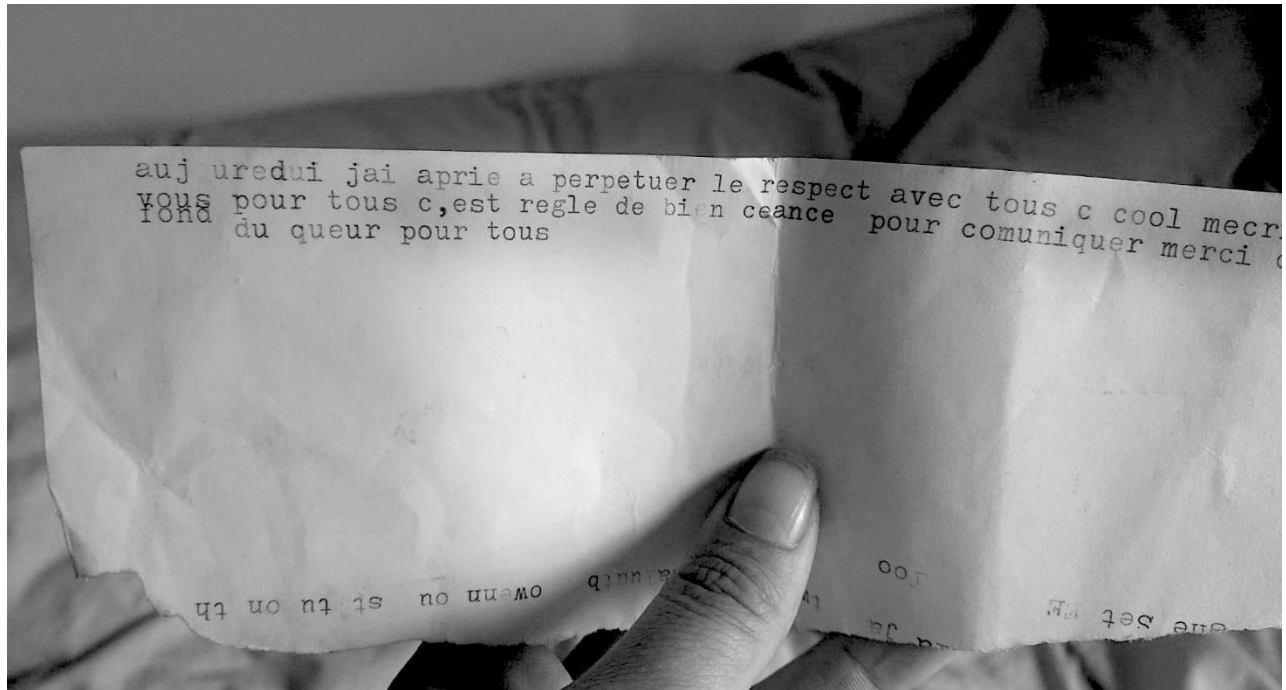 auj uredui jai aprie a perpetuer le respect avec tous c cool
vous pour tous c,est regle de bien ceance pour comuniquer merci
fond du queur pour tous
owenn ou st tu on th